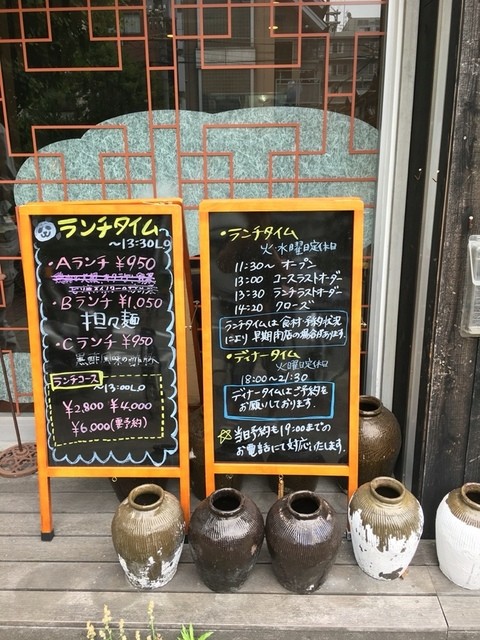 ランチタイム
～13:30L.O
・Aランチ ￥950
・Bランチ ￥1,050
担々麺
・Cランチ ￥950
黒酢
ランチコース
～13:00L.O
￥2,800 ￥4,000
￥6,000(要予約)
・ランチタイム
火・水曜日定休日
11:30～ オープン
13:00 コースラストオーダー
13:30 ランチラストオーダー
14:20 クローズ
ランチタイムは食材・予約状況
により早期閉店の場合があります。
・ディナータイム
火曜日定休日
18:00～21:30
ディナータイムはご予約を
お願いしております。
☆当日予約も19:00までの
お電話にて対応いたします。